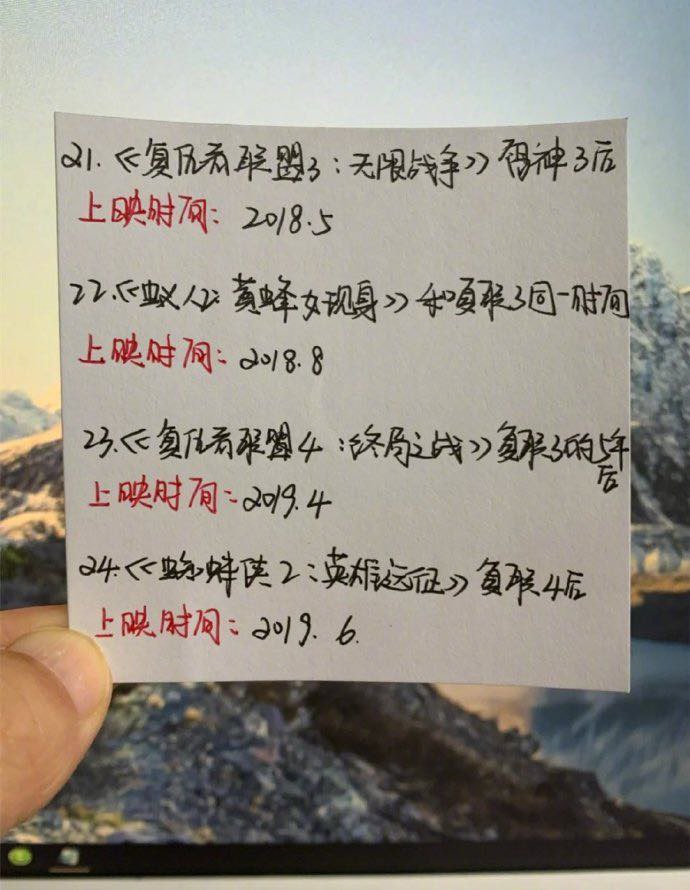 21.《复仇者联盟3:无限战争》雷神3后
上映时间: 2018.5
22.《蚁人2:黄蜂女现身》和复联3同一时间
上映时间: 2018.8
23.《复仇者联盟4:终局之战》复联3的5年后
上映时间: 2019.4
24.《蜘蛛侠2:英雄远征》复联4后
上映时间: 2019.6